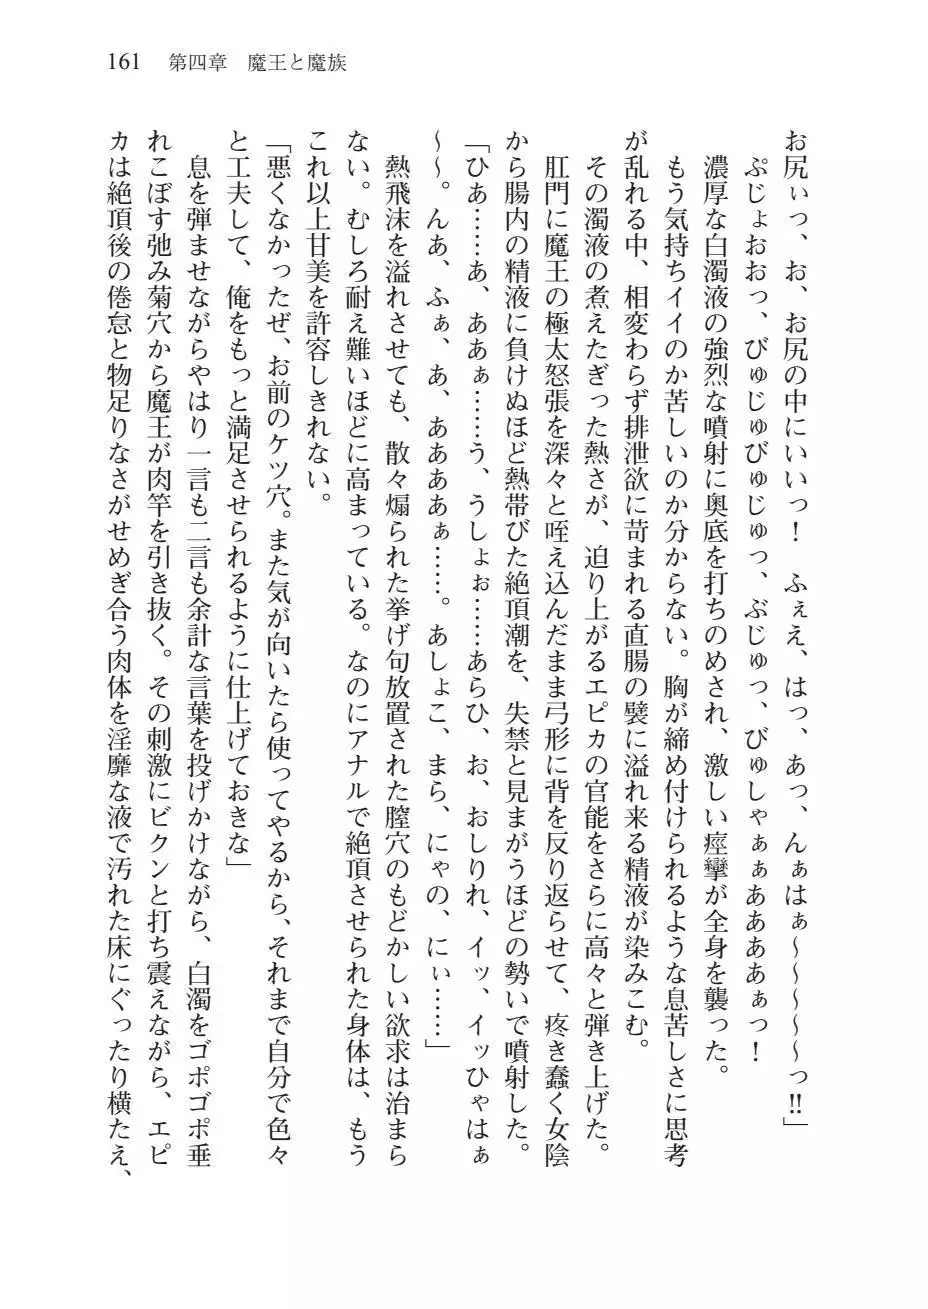 161　第四章　魔王と魔族
お尻ぃっ、お、お尻の中にいいっ！　ふぇえ、はっ、あっ、んぁはぁ～～～～～っ!!」
ぷじょおおっ、びゅじゅびゅじゅっ、ぶじゅっ、びゅしゃぁぁああああぁっ！
濃厚な白濁液の強烈な噴射に奥底を打ちのめされ、激しい痙攣が全身を襲った。
もう気持ちイイのか苦しいのか分からない。胸が締め付けられるような息苦しさに思考
が乱れる中、相変わらず排泄欲に苛まれる直腸の襞に溢れ来る精液が染みこむ。
その濁液の煮えたぎった熱さが、迫り上がるエピカの官能をさらに高々と弾き上げた。
肛門に魔王の極太怒張を深々と咥え込んだまま弓形に背を反り返らせて、疼き蠢く女陰
から腸内の精液に負けぬほど熱帯びた絶頂潮を、失禁と見まがうほどの勢いで噴射した。
「ひあ……あ、ああぁ……う、うしょぉ……あらひ、お、おしりれ、イッ、イッひゃはぁ
～～。んあ、ふぁ、あ、ああああぁ……。あしょこ、まら、にゃの、にぃ……」
熱飛沫を溢れさせても、散々煽られた挙げ句放置された膣穴のもどかしい欲求は治まら
ない。むしろ耐え難いほどに高まっている。なのにアナルで絶頂させられた身体は、もう
これ以上甘美を許容しきれない。
「悪くなかったぜ、お前のケツ穴。また気が向いたら使ってやるから、それまで自分で色々
と工夫して、俺をもっと満足させられるように仕上げておきな」
息を弾ませながらやはり一言も二言も余計な言葉を投げかけながら、白濁をゴポゴポ垂
れこぼす弛み菊穴から魔王が肉竿を引き抜く。その刺激にビクンと打ち震えながら、エピ
カは絶頂後の倦怠と物足りなさがせめぎ合う肉体を淫靡な液で汚れた床にぐったり横たえ、